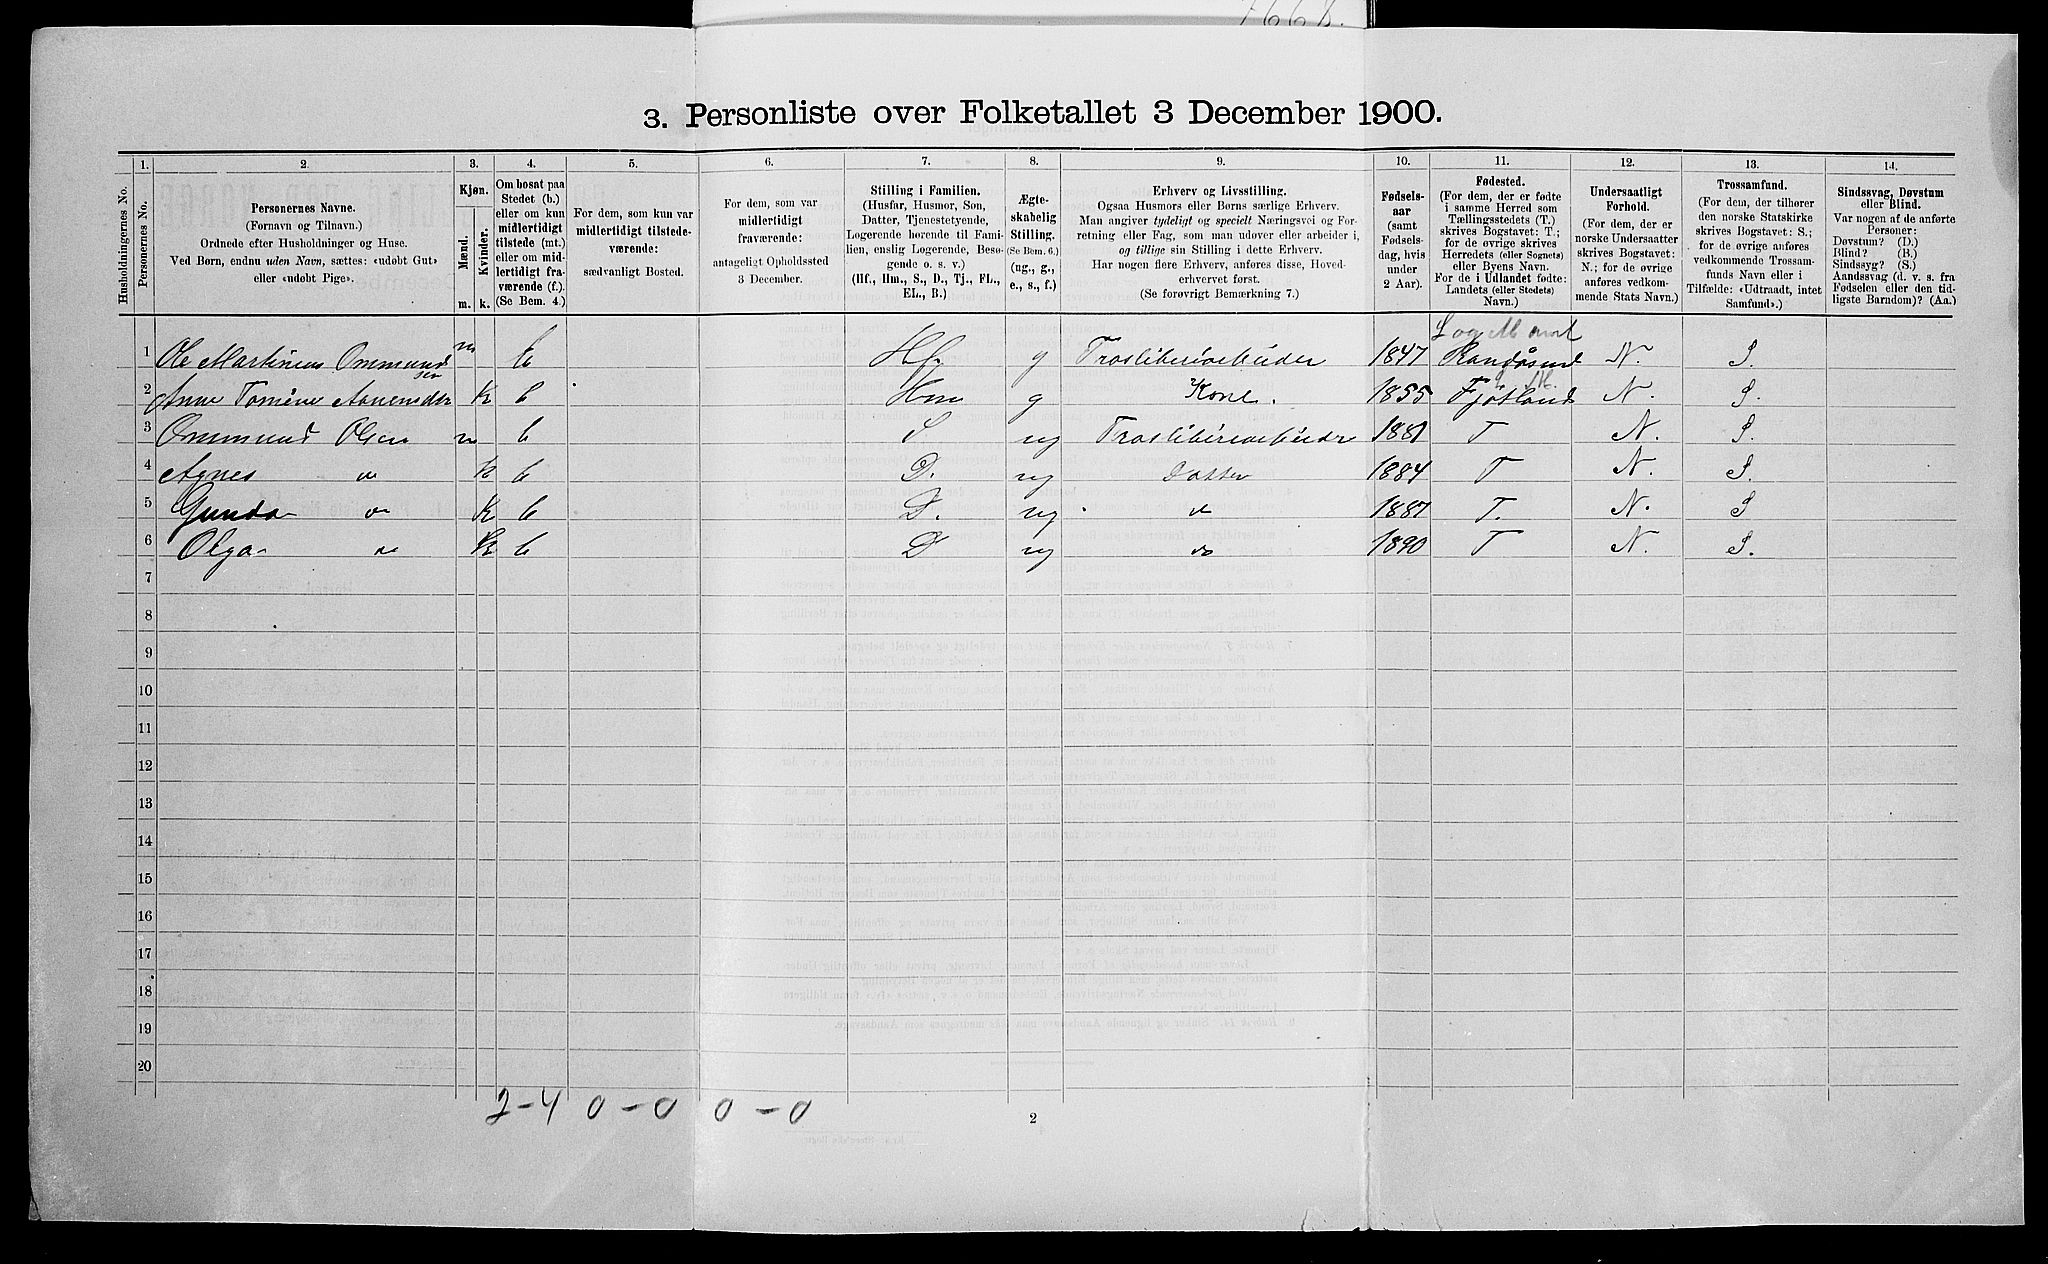 3. Personliste over Folketallet 3 December 1900.
Husholdningernes No.
1.
Personernes No.
2.
Personernes Navne.
(Fornavn og Tilnavn.)
Ordnede efter Husholdninger og Huse.
Ved Børn, endnu uden Navn, sættes: «udøbt Gut»
eller «udøbt Pige».
3.
Kjøn.
Mænd.
Kvinder.
m.
k.
4.
Om bosat paa
Stedet (b.)
eller om kun
midlertidigt
tilstede (mt.)
eller om mid-
lertidigt fra-
værende (f.)
(Se Bem. 4.)
5.
For dem, som kun var
midlertidigt tilstede-
værende:
sædvanligt Bosted.
6.
For dem, som var
midlertidigt
fraværende:
antageligt Opholdssted
3 December.
7.
Stilling i Familien.
(Husfar, Husmor, Søn,
Datter, Tjenestetyende,
Logerende hørende til Fami-
lien, enslig Logerende, Besø-
gende o. s. v.)
(Hf., Hm., S., D., Tj., FL.,
EL., B.)
8.
Ægte-
skabelig
Stilling.
(Se Bem. 6.)
(ug., g.,
e., s., f.)
9.
Erhverv og Livsstilling.
Ogsaa Husmors eller Børns særlige Erhverv.
Man angiver tydeligt og specielt Næringsvei og For-
retning eller Fag, som man udøver eller arbeider i,
og tillige sin Stilling i dette Erhverv.
Har nogen flere Erhverv, anføres disse, Hoved-
erhvervet først.
(Se forøvrigt Bemærkning 7.)
10.
Fødsels-
aar
(samt
Fødsels-
dag, hvis
under
2 Aar).
11.
Fødested.
(For dem, der er fødte
i samme Herred som
Tællingsstedets (T.)
skrives Bogstavet: T.;
for de øvrige skrives
Herredets (eller Sognets)
eller Byens Navn.
For de i Udlandet fødte:
Landets (eller Stedets)
Navn.)
12.
Undersaatligt
Forhold.
(For dem, der er
norske Undersaatter
skrives Bogstavet:
N.; for de øvrige
anføres vedkom-
mende Stats Navn.)
13.
Trossamfund.
(For dem, der tilhører
den norske Statskirke
skrives Bogstavet: S.;
for de øvrige anføres
vedkommende Trossam-
funds Navn eller i
Tilfælde: «Udtraadt, intet
Samfund».)
14.
Sindssvag, Døvstum
eller Blind.
Var nogen af de anførte
Personer:
Døvstum? (D.)
Blind? (B.)
Sindssyg? (S.)
Aandssvag (d. v. s. fra
Fødselen eller den tid-
ligste Barndom)? (Aa.)
1 Ole Martinius Ommundsen m b Hf. g 1847 Randøsund N. S.
2 Anne K b Hm g Kone. 1855 Fjotland N. S.
3 Ommund Olsen m b S ug 1881 T N. S.
4 Agnes " k b D. ug Datter 1884 T N. S.
5 Gunda " K b D. ug " 1887 T. N. S
6 Olga " k b D ug " 1890 T N. S.
7
8
9
10
11
12
13
14
15
16
17
18
19
20
2-4 0-0 0-0
2